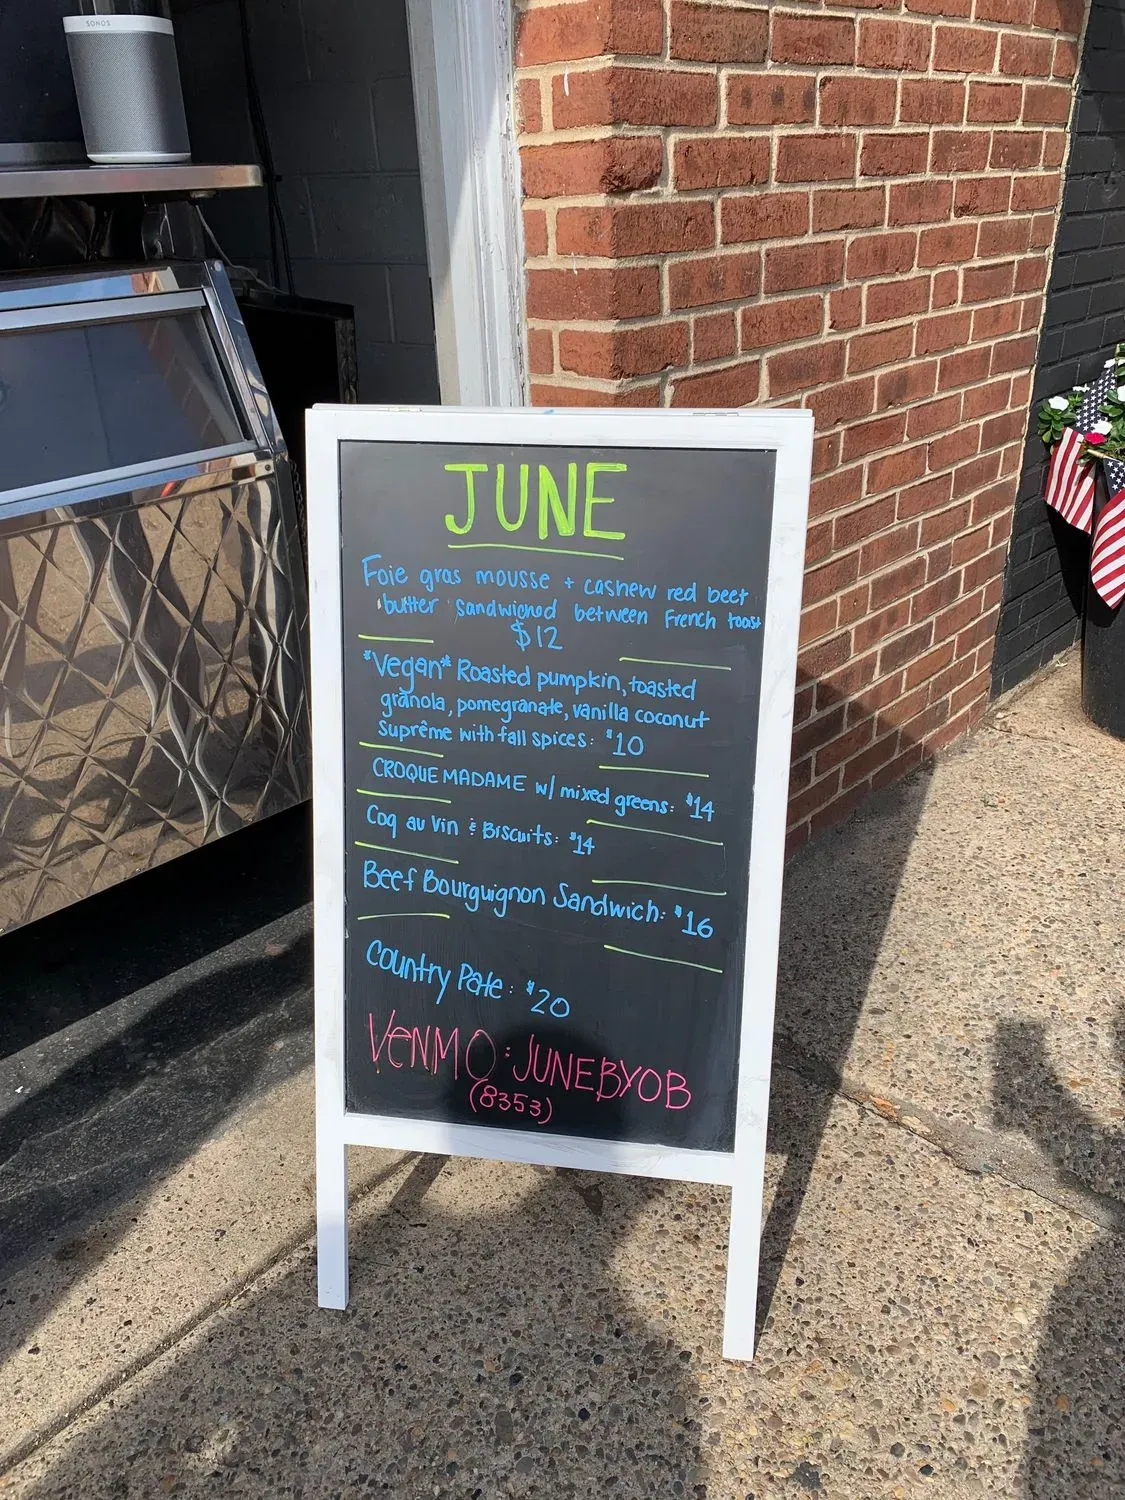 SONOS
JUNE
Foie gras mousse + cashew red beet
butter sandwiched between French toast
$12
*Vegan* Roasted pumpkin, toasted
granola, pomegranate, vanilla coconut
suprême with fall spices: $10
CROQUE MADAME w/ mixed greens: $14
Coq au Vin & Biscuits: $14
Beef Bourguignon Sandwich: $16
Country Pate: $20
VENMO: JUNEBYOB
(8353)